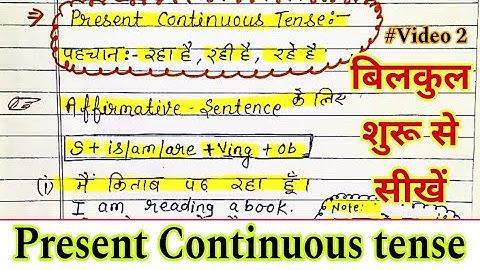 ⇒ Present Continuous Tense:-
#Video 2
पहचान:- रहा है, रही है, रहे है
बिलकुल
शुरू से
सीखें
☞ Affirmative-Sentence के लिए
S + is/am/are + Ving + ob
(i) मैं किताब पढ़ रहा हूँ।
I am reading a book.
Note:
Present Continuous tense